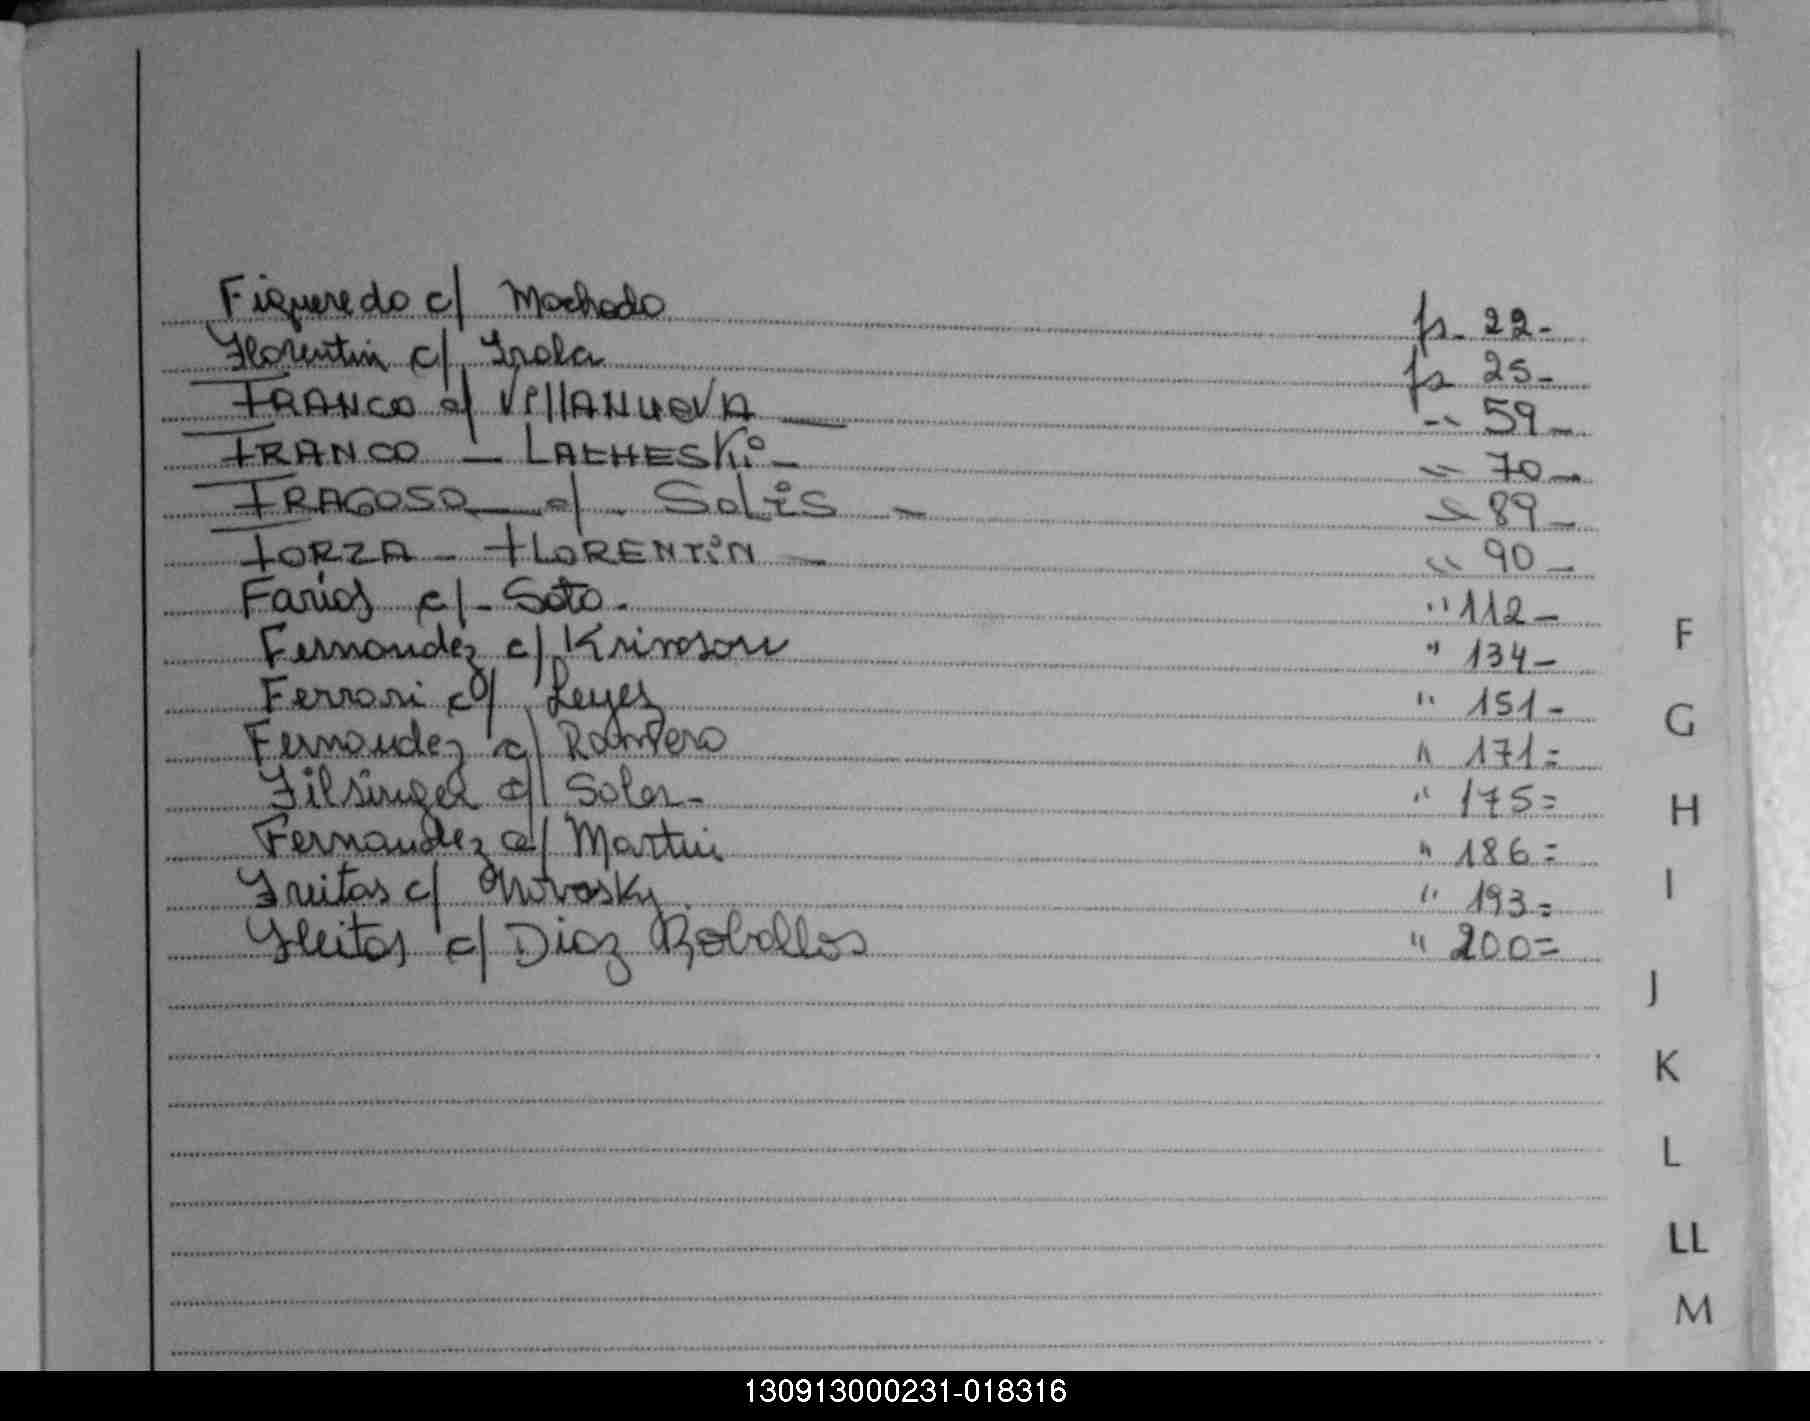 Figueredo c/ Machado fs. 22-
Florentin c/ Irala fs 25-
FRANCO c/ VillANUEVA " 59-
FRANCO - LACHESKi - " 70-
FRAGOSO c/. SOLiS - " 89-
FORZA - FLORENTiN - " 90-
Farias c/- Soto. " 112-
Fernandez c/ " 134-
Ferrari c/ Leyes " 151-
Fernandez c/ Romero " 171=
Filsinger c/ Soler- " 175=
Fernandez c/ Martin " 186=
Freitas c/ " 193=
Fleitas c/ Diaz Roballos " 200=
F
G
H
I
J
K
L
LL
M
130913000231-018316